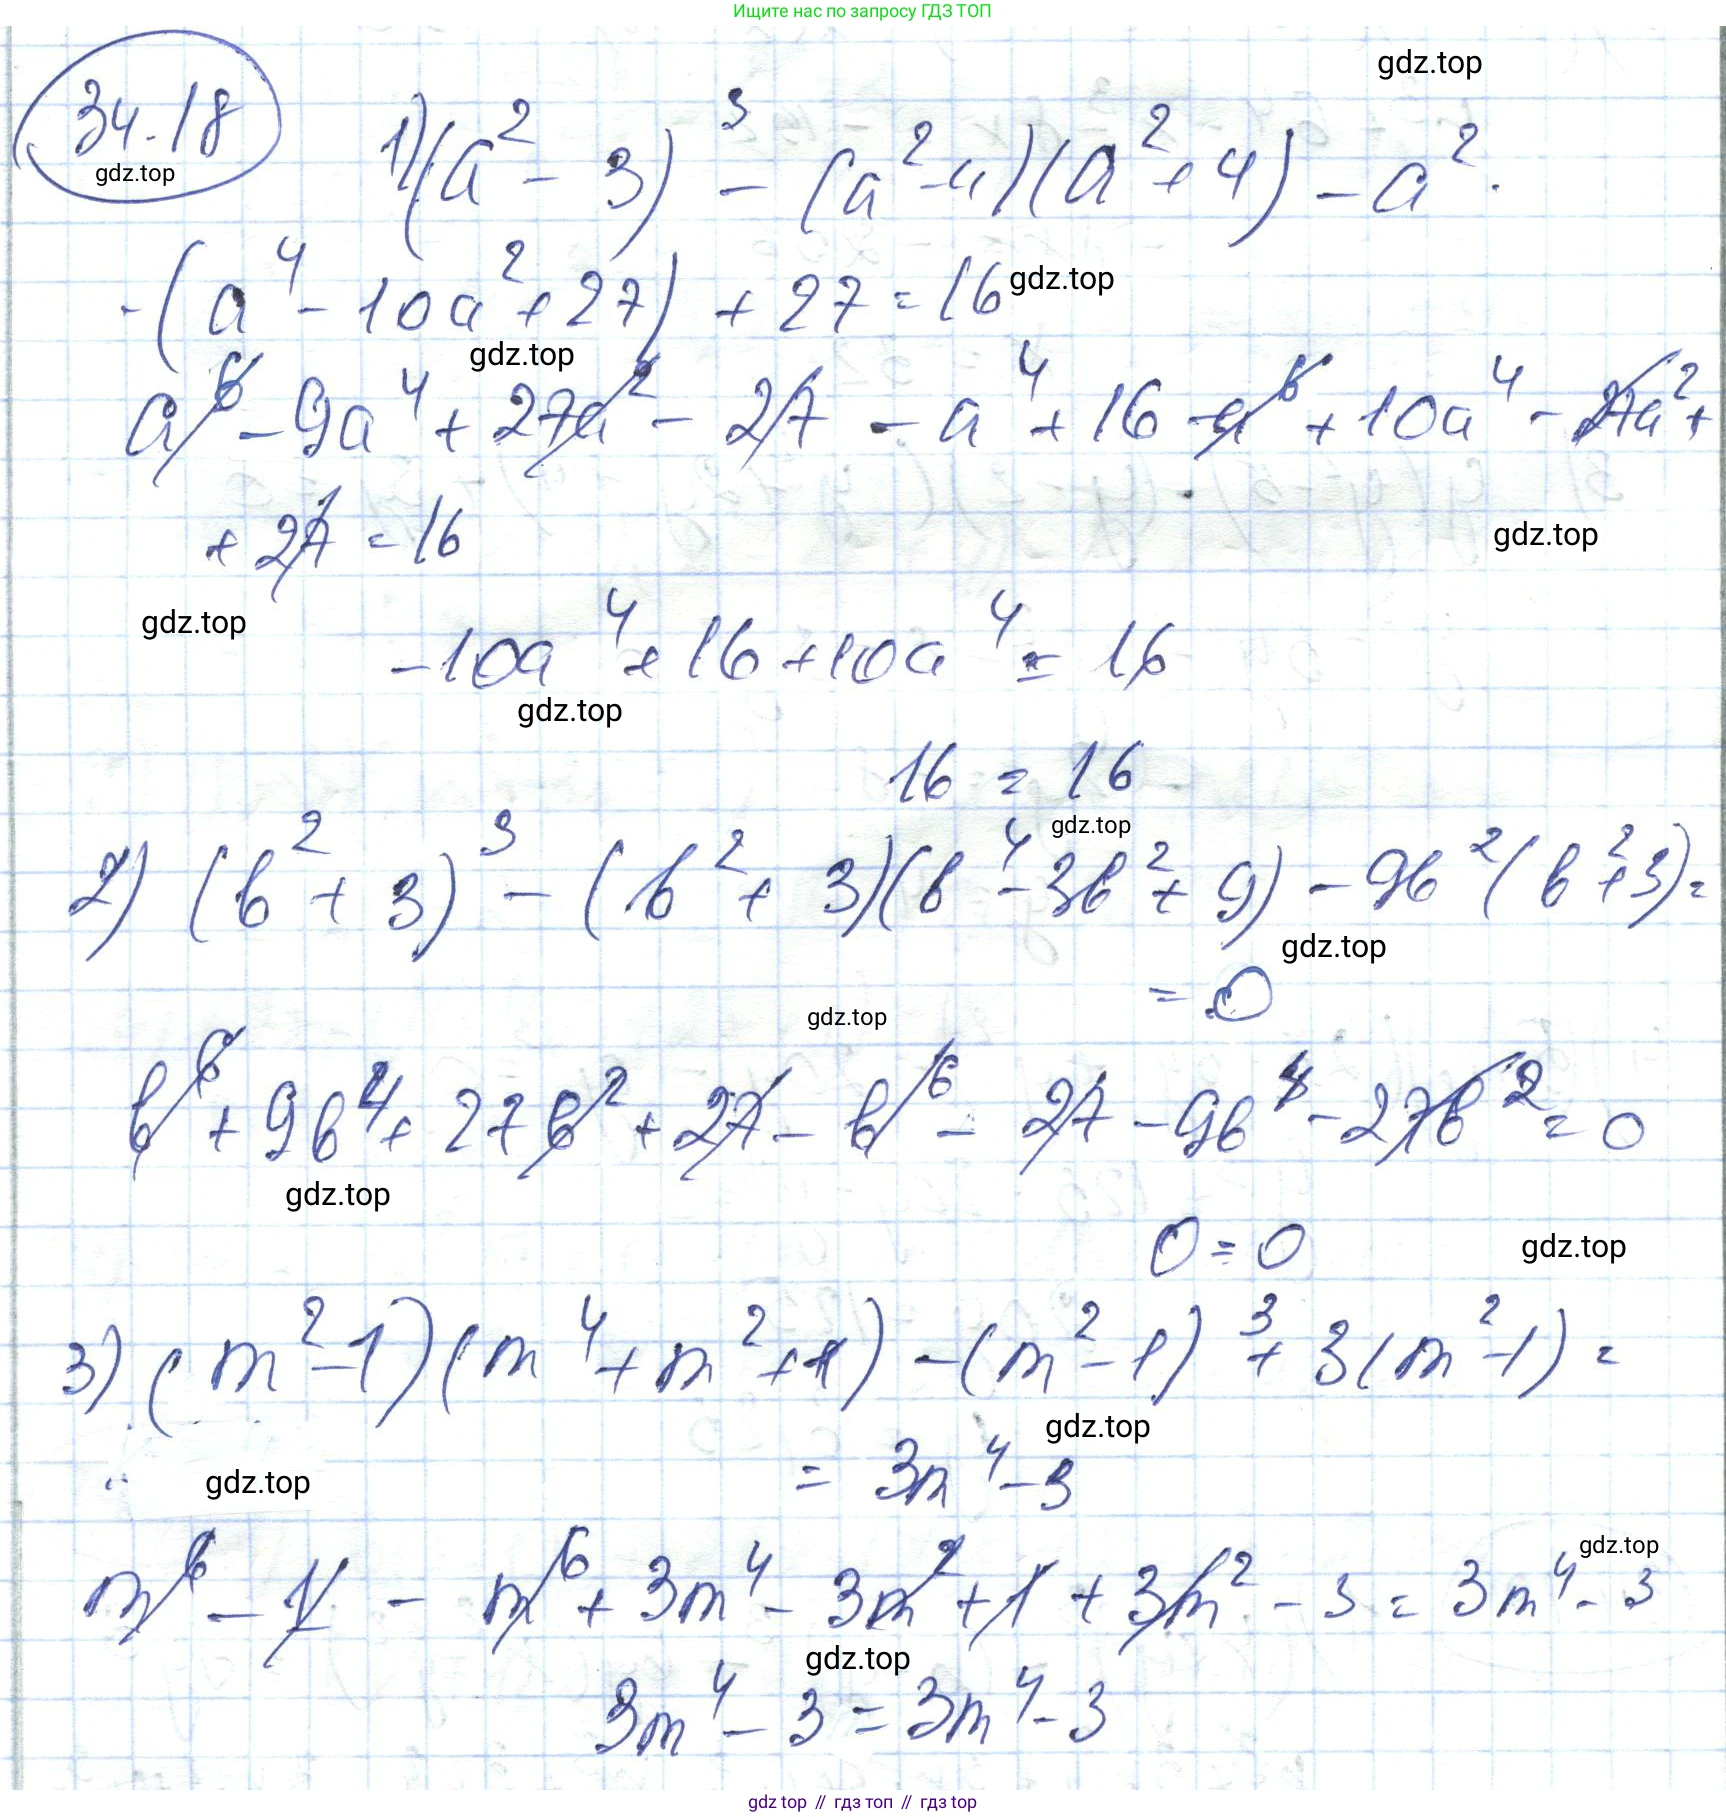 Ищите нас по запросу ГДЗ ТОП
gdz.top
34.18
gdz.top
1) (a² - 3)³ - (a² - 4)(a² + 4) - a² ·
· (a⁴ - 10a² + 27) + 27 = 16
gdz.top
gdz.top
a⁶ - 9a⁴ + 27a² - 27 - a⁴ + 16 - a⁶ + 10a⁴ - 27a² +
+ 27 = 16
gdz.top
gdz.top
-10a⁴ + 16 + 10a⁴ = 16
gdz.top
16 = 16
gdz.top
2) (b² + 3)³ - (b² + 3)(b⁴ - 3b² + 9) - 9b² (b² + 3) =
gdz.top
= 0
gdz.top
b⁶ + 9b⁴ + 27b² + 27 - b⁶ - 27 - 9b⁴ - 27b² = 0
gdz.top
0 = 0
gdz.top
3) (m² - 1)(m⁴ + m² + 1) - (m² - 1)³ + 3(m² - 1) =
gdz.top
= 3m⁴ - 3
gdz.top
gdz.top
m⁶ - 1 - m⁶ + 3m⁴ - 3m² + 1 + 3m² - 3 = 3m⁴ - 3
gdz.top
3m⁴ - 3 = 3m⁴ - 3
gdz.top // гдз топ // гдз top